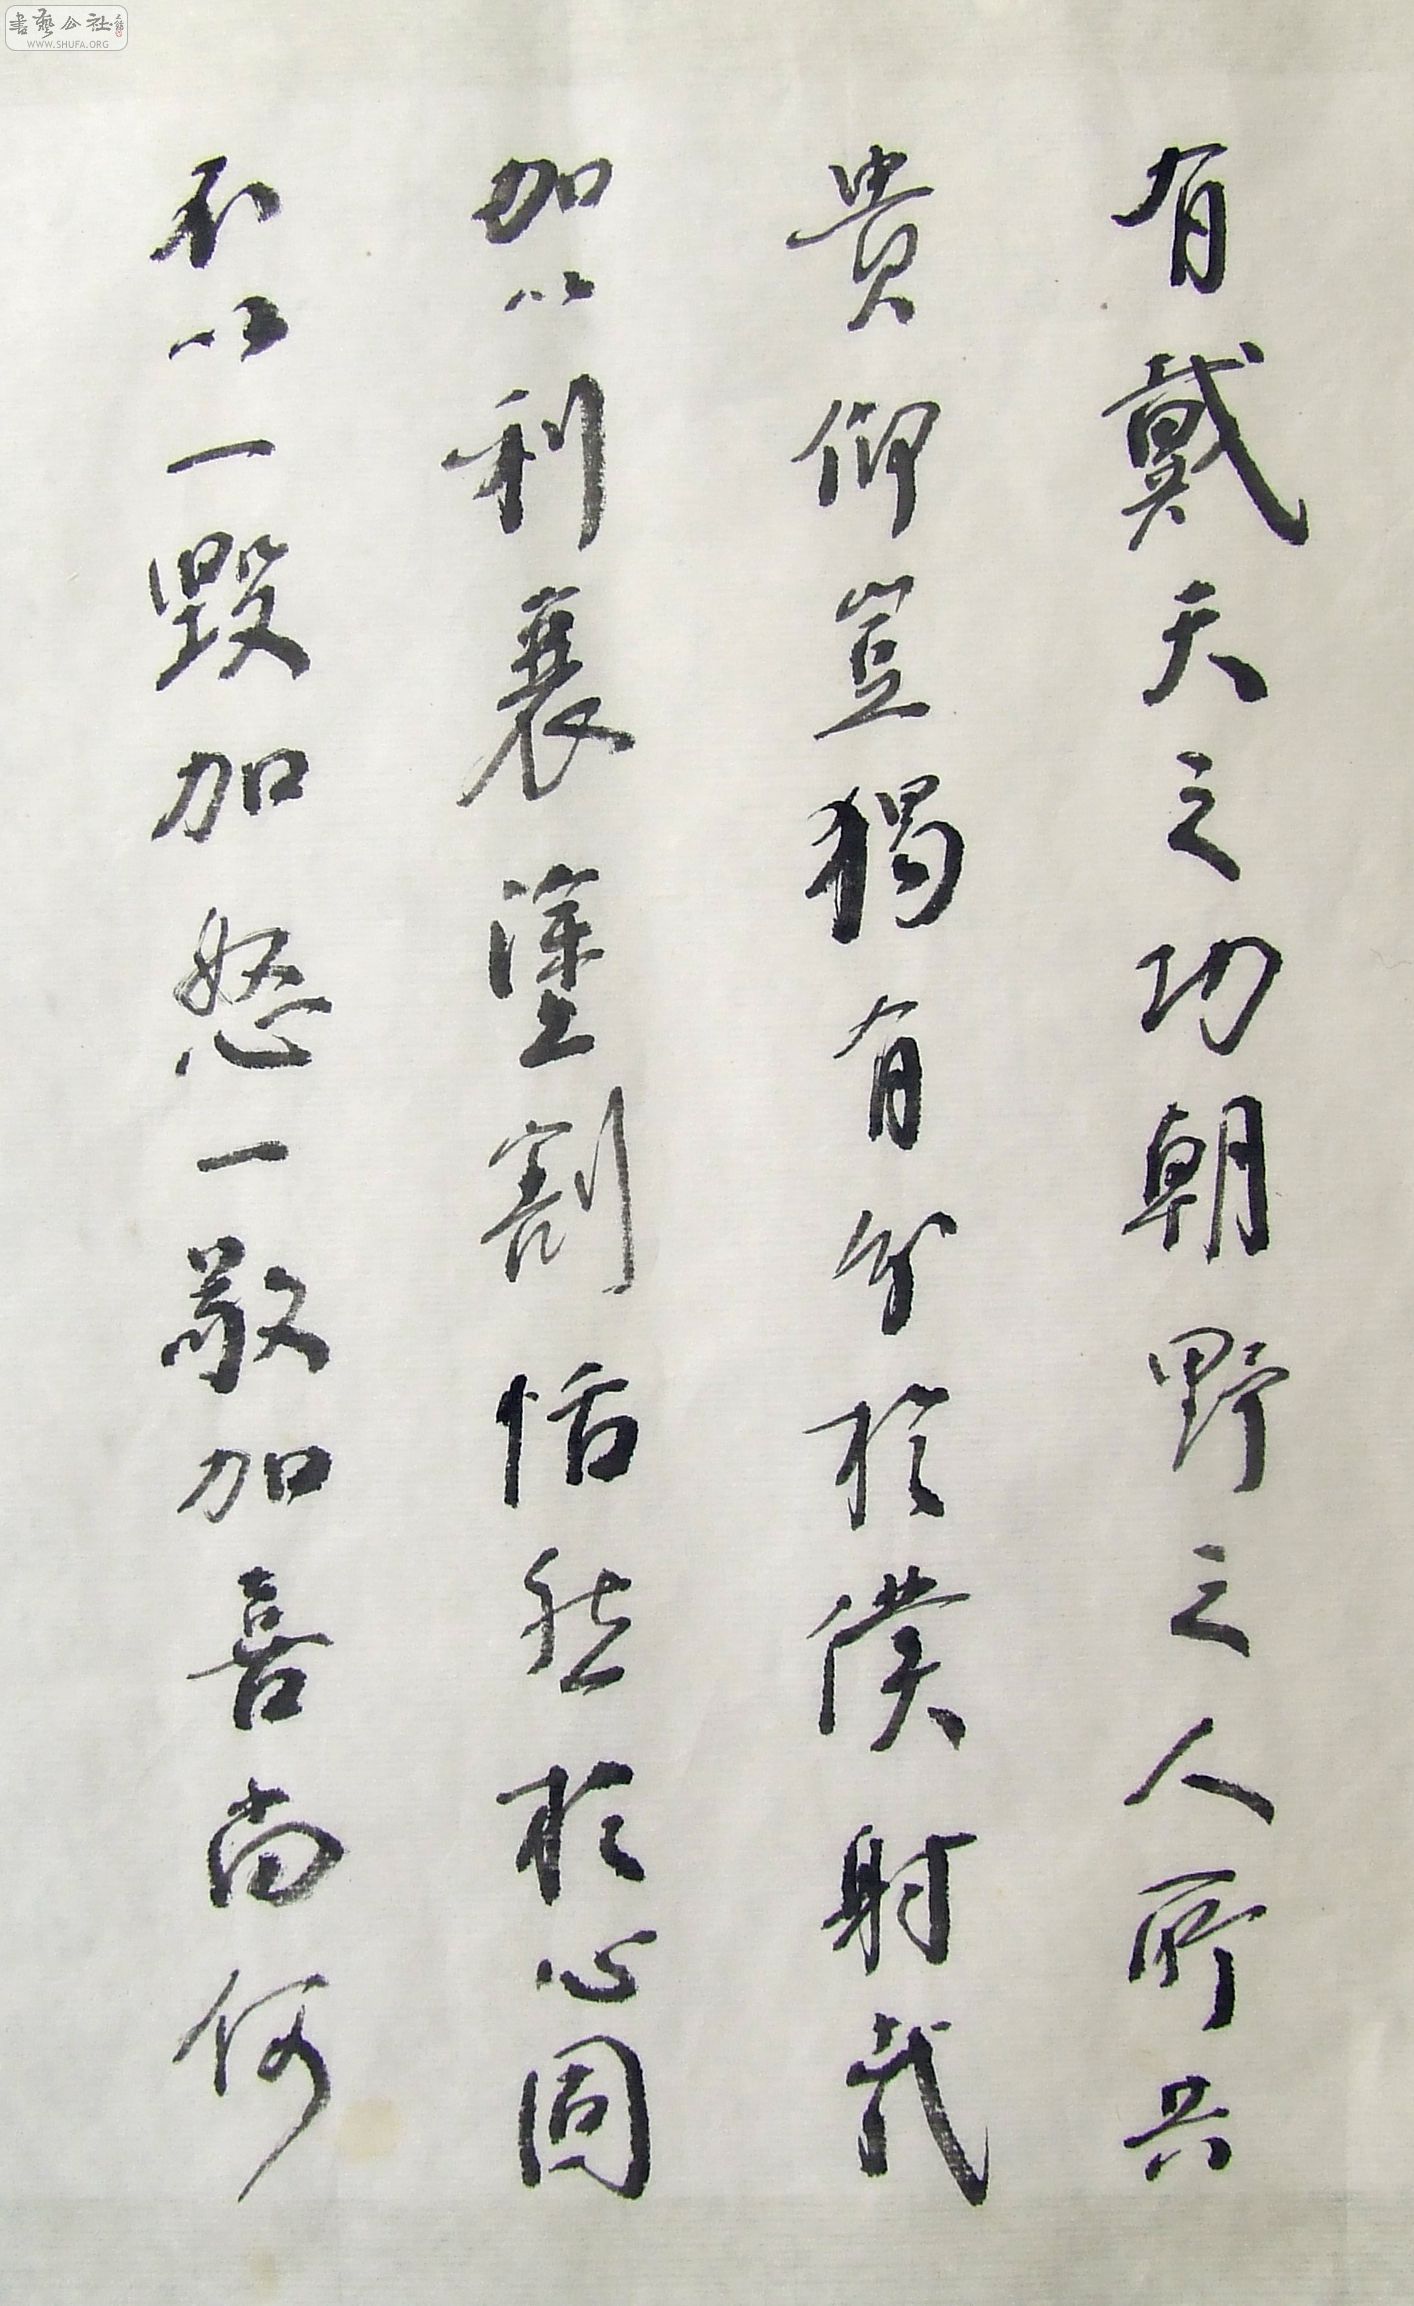 有戴天之功朝野之人所共
貴仰豈獨有分於僕射哉
加以利衰塗割恬然於心固
不以一毀加怒一敬加喜尚何
書藝公社
WWW.SHUFA.ORG